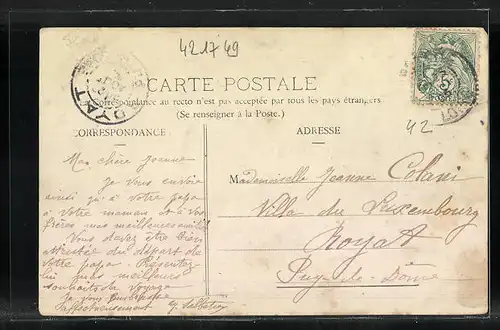 421749
CARTE POSTALE
La Correspondance au recto n'est pas acceptée par tous les pays étrangers
(Se renseigner à la Poste.)
CORRESPONDANCE
ADRESSE
42
ROYAT
5
Ma chère Jeanne
Je vous envoie
ainsi qu'à votre papa
à votre maman et à vos
frères mes meilleures amitiés
Vous devez être bien
attristée du départ de
votre papa. Présentez-
lui mes meilleurs
souhaits de voyage
Je vous embrasse
affectueusement
Mademoiselle Jeanne Colani
Villa du Luxembourg
Royat
Puy-de-Dôme